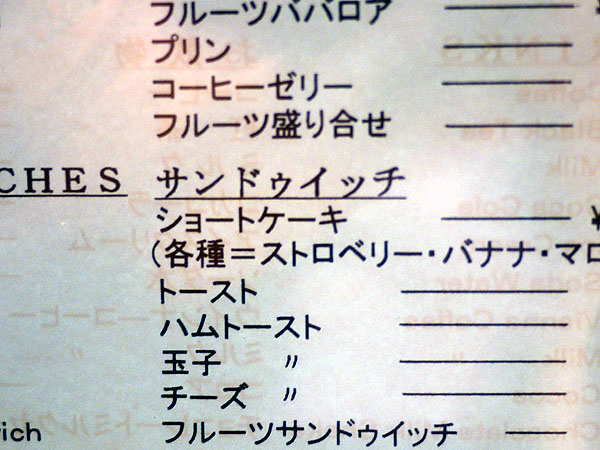 フルーツババロア
プリン
コーヒーゼリー
フルーツ盛り合せ
CHES サンドゥイッチ
ショートケーキ ¥
(各種＝ストロベリー・バナナ・マロ
トースト
ハムトースト
玉子 〃
チーズ 〃
ich フルーツサンドゥイッチ